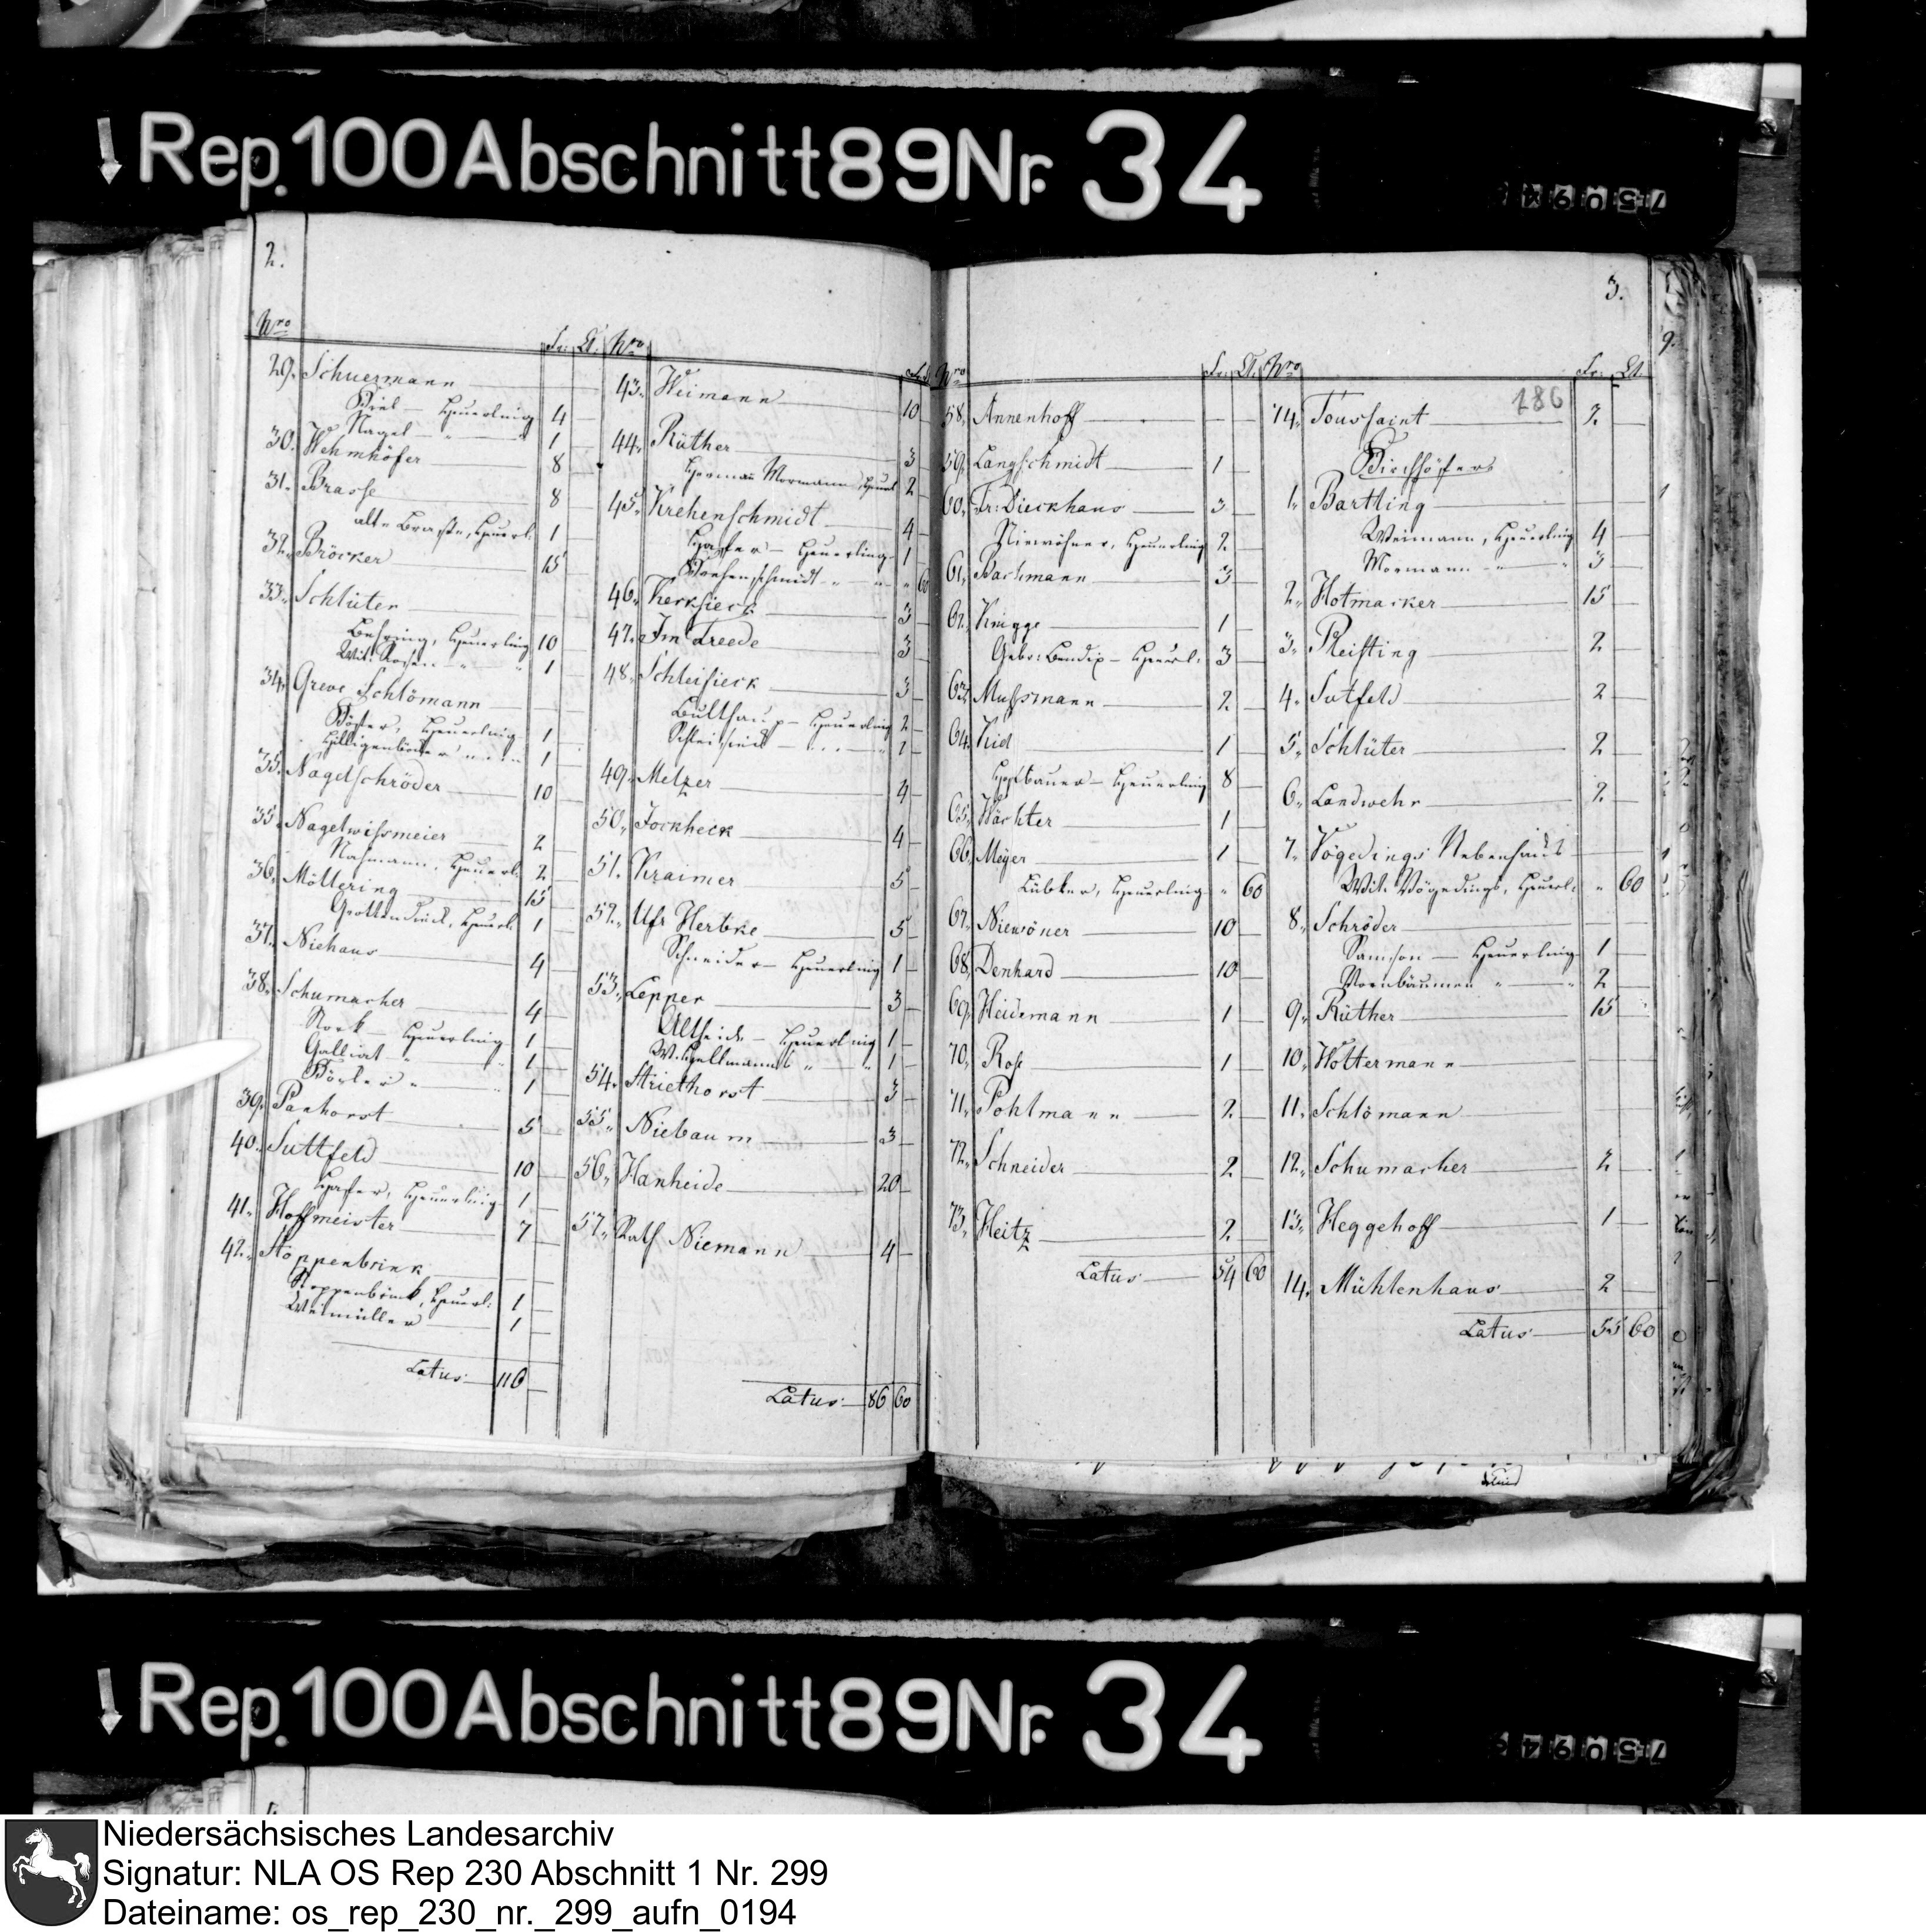 Rep. 100 Abschnitt 89 Nr. 34
75094
2.
Nro Fr: Ct.
29. Schuermann
Biel — Heuerling 4
Nagel — " 1
30. Wehmhöfer 8
31. Brasse 8
alte Brasse, Heuerl: 1
32. Bröcker 15
33. Schlüter
Behring, Heuerling 10
Wit: Rosen " " 1
34. Greve Schlömann
Böster, Heuerling 1
Hilligenböcker " " 1
35. Nagelschröder 10
35. Nagelwissmeier 2
Nahmann, Heuerl: 2
36. Möllering 15
Grottendieck, Heuerl: 1
37. Niehaus 4
38. Schumacher 4
Nork — Heuerling 1
Galliat " " 1
Böcker " 1
39. Panhorst 5
40. Suttfeld 10
Hafer, Heuerling 1
41. Hoffmeister 7
42. Stoppenbrink
Stoppenbrink, Heuerl: 1
Weimüller 1
Latus 116
Nro
43. Weimann 10
44. Rüther 3
Herman Mormann, Heuerl 2
45. Krehenschmidt 4
Hafer — Heuerling 1
Krehenschmidt " " " 60
46. Kerksieck 3
47. Im Treede 3
48. Schleisieck 3
Bulthaup — Heuerling 2
Schleisieck 1
49. Melzer 4
50. Jockheck 4
51. Kraimer 5
52. Ufr Herbke 5
Schneider — Heuerling 1
53. Lepper 3
Altheide — Heuerling 1
W. Hallmanns " " 1
54. Striethorst 3
55. Niebaum 3
56. Hanheide 20
57. Rath Niemann 4
Latus 86 60
3.
Nro Fr: Ct.
58. Annenhoff
59. Langschmidt 1
60. Fr: Dieckhaus 3
Niewöhner, Heuerling 2
61. Bartmann 3
62. Knigge 1
Gebr: Bendix — Heuerl: 3
63. Mussmann 2
64. Kiel 1
Hofbauer — Heuerling 8
65. Wächter 1
66. Meyer 1
Lübker, Heuerling " 60
67. Niewöner 10
68. Denhard 10
69. Heidemann 1
70. Rose 1
71. Pohlmann 2
72. Schneider 2
73. Heitz 2
Latus 54 60
Nro Fr: Ct.
186
74. Toussaint 2
1. Bartling
Weimann, Heuerling 4
Mormann " " 3
2. Hotmacker 15
3. Pleisting 2
4. Sutfeld 2
5. Schlüter 2
6. Landwehr 2
7. Vögedings Nebenhaus
Wit: Vögedings, Heuerl: " 60
8. Schröder
Samson — Heuerling 1
Vornbäumen " " 2
9. Rüther 15
10. Höltermann
11. Schlömann
12. Schumacher 2
13. Heggehoff 1
14. Mühlenhaus 2
Latus 55 60
Rep. 100 Abschnitt 89 Nr. 34
75094
Niedersächsisches Landesarchiv
Signatur: NLA OS Rep 230 Abschnitt 1 Nr. 299
Dateiname: os_rep_230_nr._299_aufn_0194